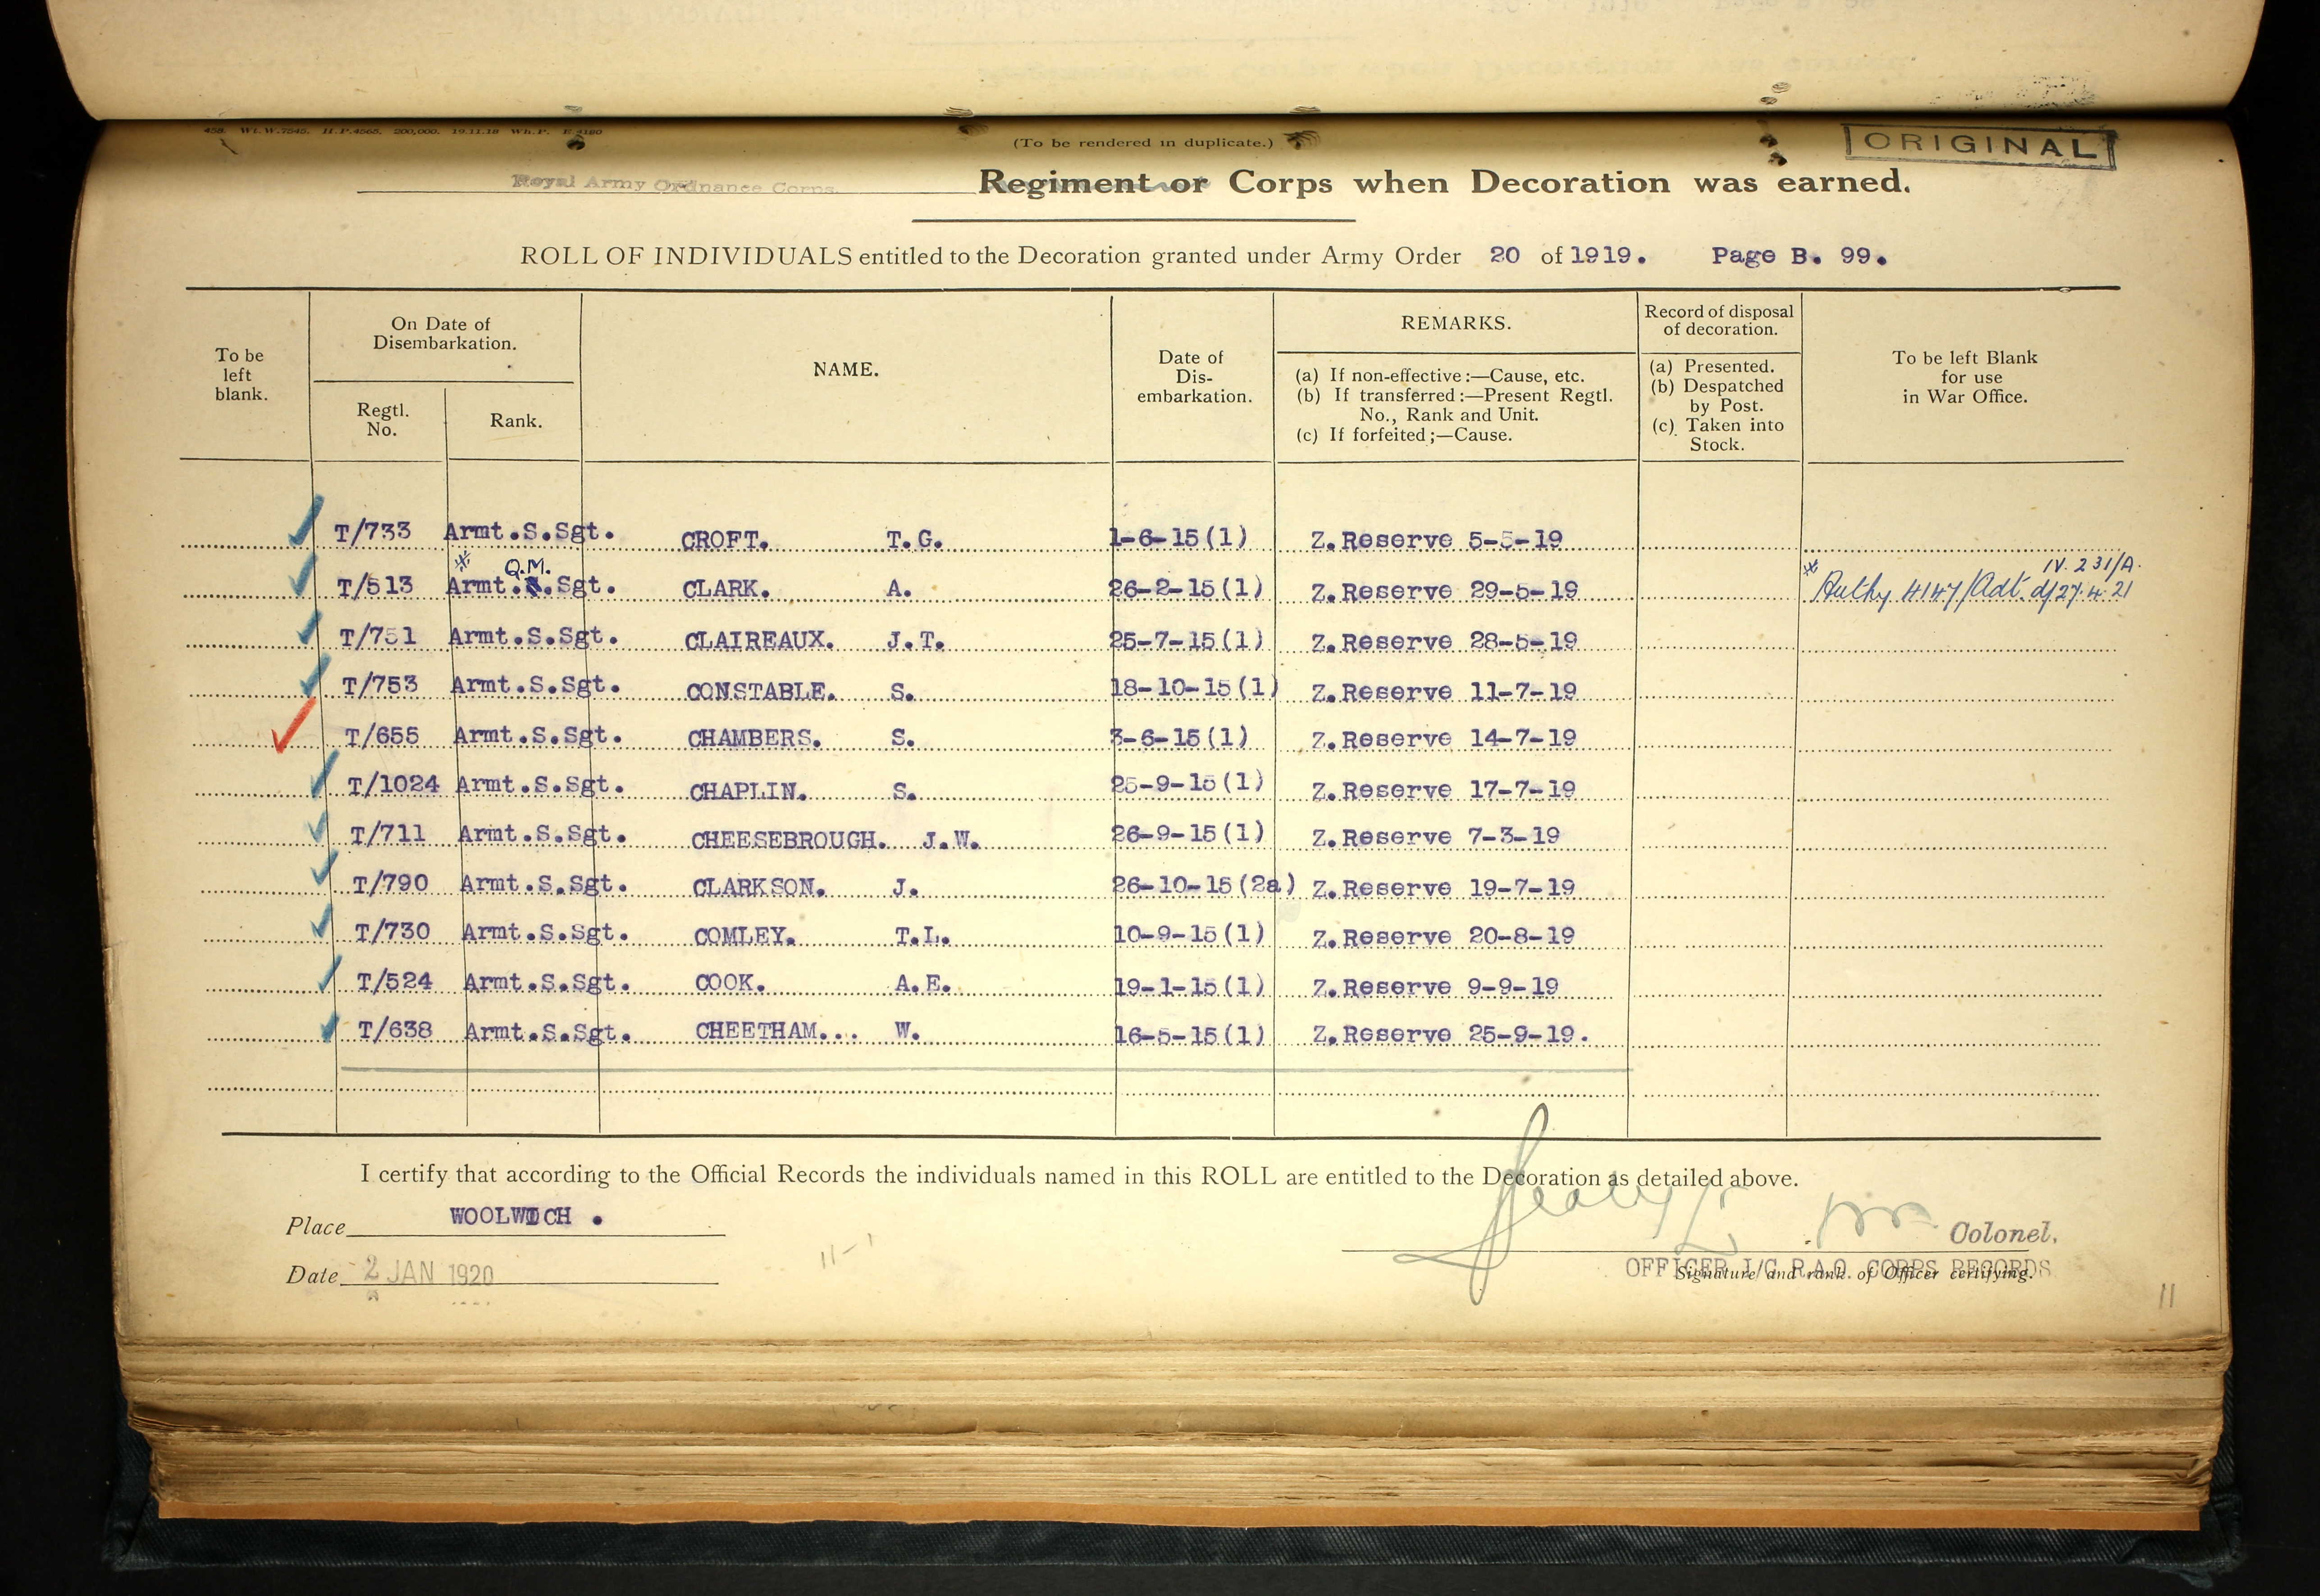 458. Wt.W.7545. H.P.4565. 200,000. 19.11.18 Wh.P. E 4180
(To be rendered in duplicate.)
ORIGINAL
Royal Army Ordnance Corps. Regiment or Corps when Decoration was earned.
ROLL OF INDIVIDUALS entitled to the Decoration granted under Army Order 20 of 1919. Page B. 99.
To be left blank.
On Date of Disembarkation.
Regtl. No.
Rank.
NAME.
Date of Dis-embarkation.
REMARKS.
(a) If non-effective:—Cause, etc.
(b) If transferred:—Present Regtl. No., Rank and Unit.
(c) If forfeited;—Cause.
Record of disposal of decoration.
(a) Presented.
(b) Despatched by Post.
(c) Taken into Stock.
To be left Blank for use in War Office.
T/733 Armt.S.Sgt. CROFT. T.G. 1-6-15(1) Z.Reserve 5-5-19
* Q.M. IV. 231/A.
T/513 Armt.S.Sgt. CLARK. A. 26-2-15(1) Z.Reserve 29-5-19 * Authy 4147/Adt. d/27.4.21
T/751 Armt.S.Sgt. CLAIREAUX. J.T. 25-7-15(1) Z.Reserve 28-5-19
T/753 Armt.S.Sgt. CONSTABLE. S. 18-10-15(1) Z.Reserve 11-7-19
T/655 Armt.S.Sgt. CHAMBERS. S. 3-6-15(1) Z.Reserve 14-7-19
T/1024 Armt.S.Sgt. CHAPLIN. S. 25-9-15(1) Z.Reserve 17-7-19
T/711 Armt.S.Sgt. CHEESEBROUGH. J.W. 26-9-15(1) Z.Reserve 7-3-19
T/790 Armt.S.Sgt. CLARKSON. J. 26-10-15(2a) Z.Reserve 19-7-19
T/730 Armt.S.Sgt. COMLEY. T.L. 10-9-15(1) Z.Reserve 20-8-19
T/524 Armt.S.Sgt. COOK. A.E. 19-1-15(1) Z.Reserve 9-9-19
T/638 Armt.S.Sgt. CHEETHAM... W. 16-5-15(1) Z.Reserve 25-9-19.
I certify that according to the Official Records the individuals named in this ROLL are entitled to the Decoration as detailed above.
Place WOOLWICH .
Colonel.
Date 2 JAN 1920
11-1
OFFICER I/C R.A.O. CORPS RECORDS
Signature and rank of Officer certifying.
11